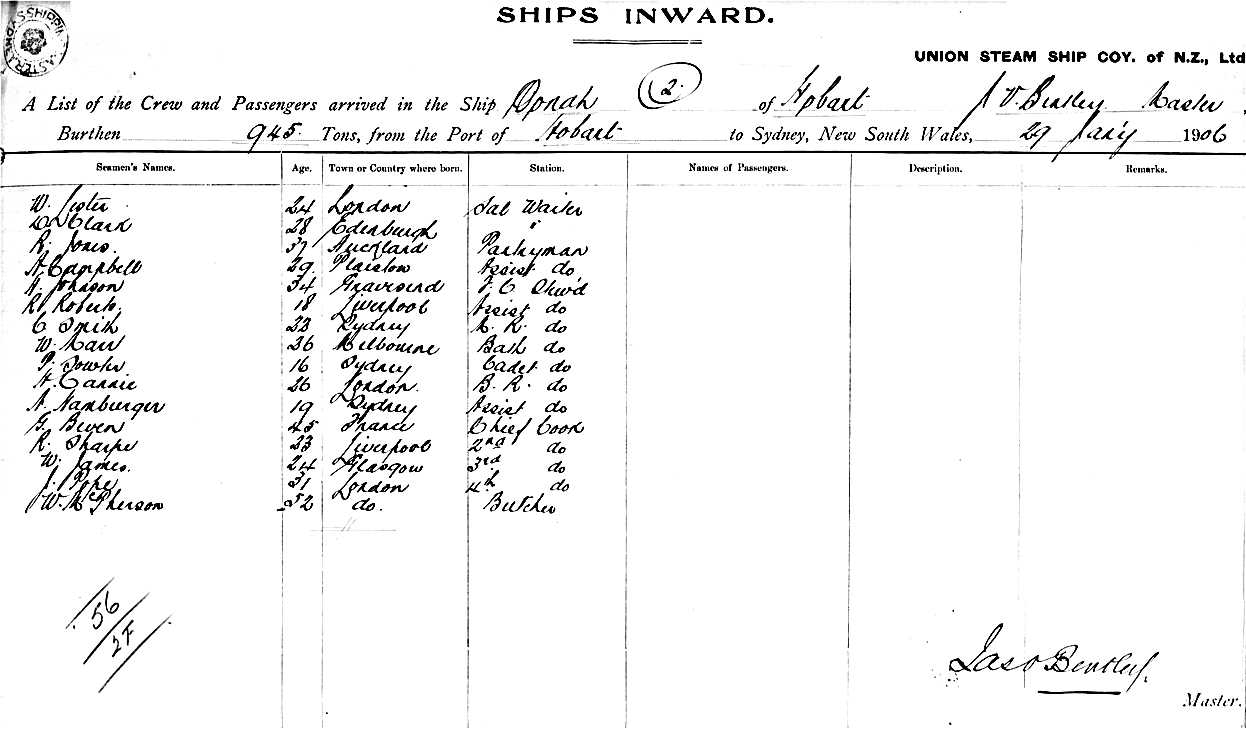 SHIPS INWARD.
UNION STEAM SHIP COY. of N.Z., Ltd
A List of the Crew and Passengers arrived in the Ship Oonah (2) of Hobart J V. Bentley Master,
Burthen 945 Tons, from the Port of Hobart to Sydney, New South Wales, 29 Jany 1906
Seamen's Names. Age. Town or Country where born. Station. Names of Passengers. Description. Remarks.
W. Lister 24 London Sal Waiter
D. Clark 28 Edinburgh "
R. Jones. 37 Auckland Pantryman
A. Campbell 29. Plaistow Assist do
H. Johnson 34 Gravesend F. C Stew'd
R. Roberts. 18 Liverpool Assist do
C Smith 23 Sydney S. R. do
W. Marr 36 Melbourne Bath do
P. Fowler 16 Sydney Cadet do
A. Cannie 26 London. B. R. do
A. Hamburger 19 Sydney Assist do
G. Beven 45 France Chief Cook
R. Sharpe 23 Liverpool 2nd do
W. James. 24 Glasgow 3rd do
J. Pope 31 London 4th do
W. McPherson 52 do. Butcher
56/27
Jas V Bentley.
Master.